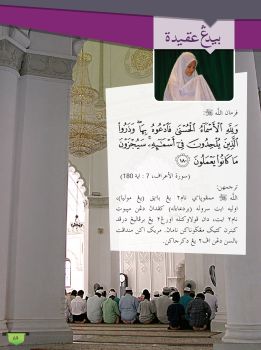 بيدڠ عقيدة
فرمان الله ﷻ:
وَلِلَّهِ ٱلْأَسْمَآءُ ٱلْحُسْنَىٰ فَٱدْعُوهُ بِهَا ۖ وَذَرُوا۟
ٱلَّذِينَ يُلْحِدُونَ فِىٓ أَسْمَٰٓئِهِۦ ۚ سَيُجْزَوْنَ
مَا كَانُوا۟ يَعْمَلُونَ ١٨٠
(سورة الأعراف، 7 : اية 180)
ترجمهن:
الله ممڤوڽاي نام٢ يڠ باءيق (يڠ موليا)،
اوليه ايت سروله (بردعاءله) كڤدان دڠن مڽبوت
نام٢ ايت، دان ڤولاوكنله اورڠ٢ يڠ برڤاليڠ درڤد
كبنرن كتيك مڠݢوناكن نامان. مريك اكن منداڤت
بالسن دڠن اڤ٢ يڠ دكرجاكن.